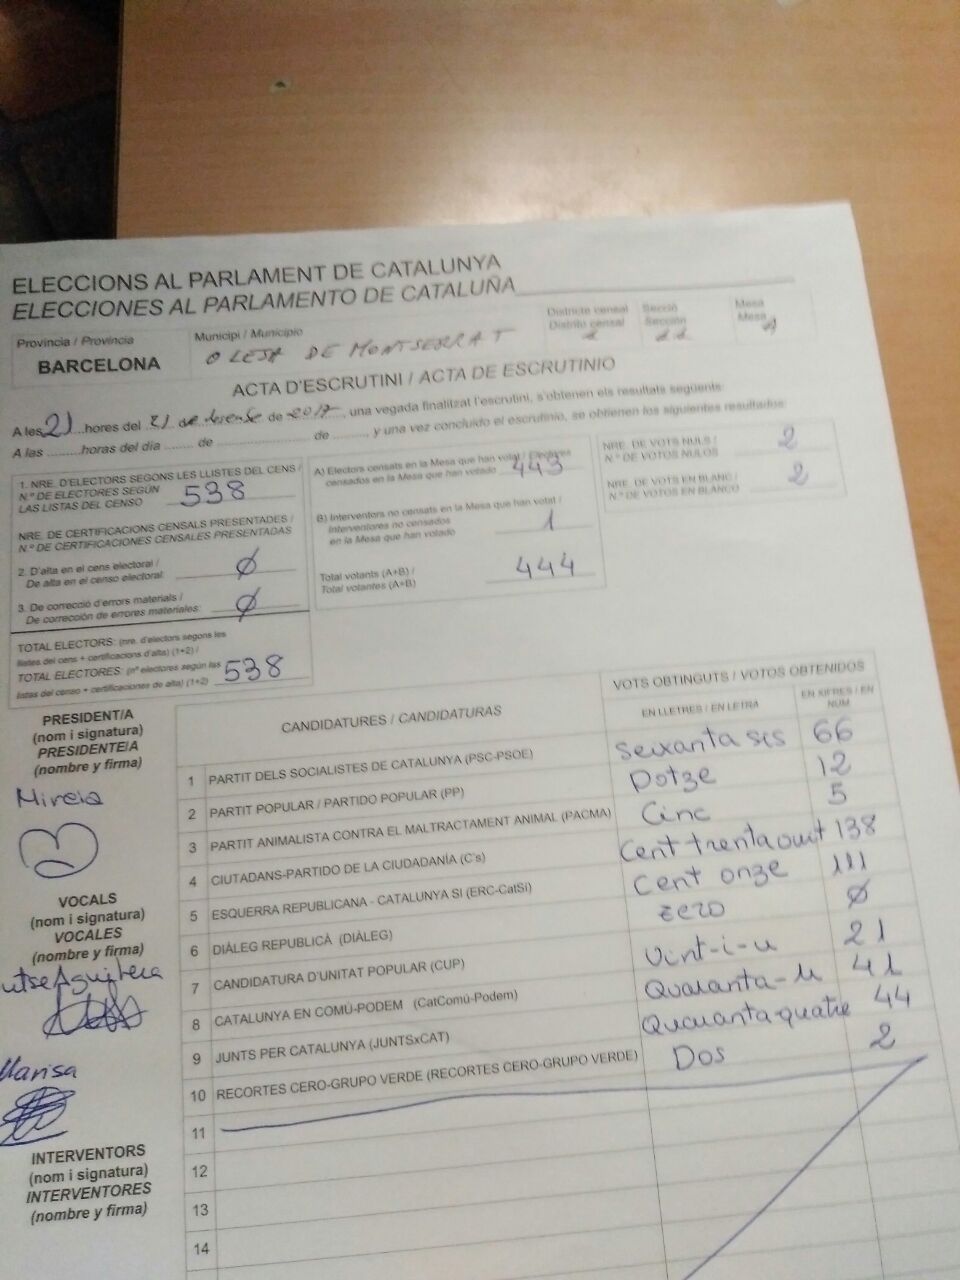 ELECCIONS AL PARLAMENT DE CATALUNYA
ELECCIONES AL PARLAMENTO DE CATALUÑA
Provincia / Provincia
BARCELONA
Municipi / Municipio
OLESA DE MONTSERRAT
Districte censal
Distrito censal
Secció
Sección
Mesa
Mesa
ACTA D'ESCRUTINI / ACTA DE ESCRUTINIO
A les 21 hores del 21 de desembre de 2017, una vegada finalitzat l'escrutini, s'obtenen els resultats següents:
A las .........horas del día ........ de ........................ de ........, y una vez concluido el escrutinio, se obtienen los siguientes resultados:
1. NRE. D'ELECTORS SEGONS LES LLISTES DEL CENS /
N.º DE ELECTORES SEGÚN
LAS LISTAS DEL CENSO 538
NRE. DE CERTIFICACIONS CENSALS PRESENTADES /
N.º DE CERTIFICACIONES CENSALES PRESENTADAS
2. D'alta en el cens electoral /
De alta en el censo electoral: Ø
3. De correcció d'errors materials /
De corrección de errores materiales: Ø
TOTAL ELECTORS: (nre. d'electors segons les
llistes del cens + certificacions d'alta) (1+2) /
TOTAL ELECTORES: (nº electores según las
listas del censo + certificaciones de alta) (1+2) 538
A) Electors censats en la Mesa que han votat / Electores
censados en la Mesa que han votado 443
B) Interventors no censats en la Mesa que han votat /
Interventores no censados
en la Mesa que han votado 1
Total votants (A+B) /
Total votantes (A+B) 444
NRE. DE VOTS NULS /
N.º DE VOTOS NULOS 2
NRE. DE VOTS EN BLANC /
N.º DE VOTOS EN BLANCO 2
PRESIDENT/A
(nom i signatura)
PRESIDENTE/A
(nombre y firma)
Mireia
VOCALS
(nom i signatura)
VOCALES
(nombre y firma)
Marisa
INTERVENTORS
(nom i signatura)
INTERVENTORES
(nombre y firma)
CANDIDATURES / CANDIDATURAS
VOTS OBTINGUTS / VOTOS OBTENIDOS
EN LLETRES / EN LETRA
EN XIFRES / EN
NUM
1 PARTIT DELS SOCIALISTES DE CATALUNYA (PSC-PSOE) Seixanta sis 66
2 PARTIT POPULAR / PARTIDO POPULAR (PP) Dotze 12
3 PARTIT ANIMALISTA CONTRA EL MALTRACTAMENT ANIMAL (PACMA) Cinc 5
4 CIUTADANS-PARTIDO DE LA CIUDADANÍA (C's) Cent trenta ouit 138
5 ESQUERRA REPUBLICANA - CATALUNYA SI (ERC-CatSí) Cent onze 111
6 DIÀLEG REPUBLICÀ (DIÀLEG) zero Ø
7 CANDIDATURA D'UNITAT POPULAR (CUP) Vint-i-u 21
8 CATALUNYA EN COMÚ-PODEM (CatComú-Podem) Quaranta-u 41
9 JUNTS PER CATALUNYA (JUNTSxCAT) Quaranta-quatre 44
10 RECORTES CERO-GRUPO VERDE (RECORTES CERO-GRUPO VERDE) Dos 2
11
12
13
14